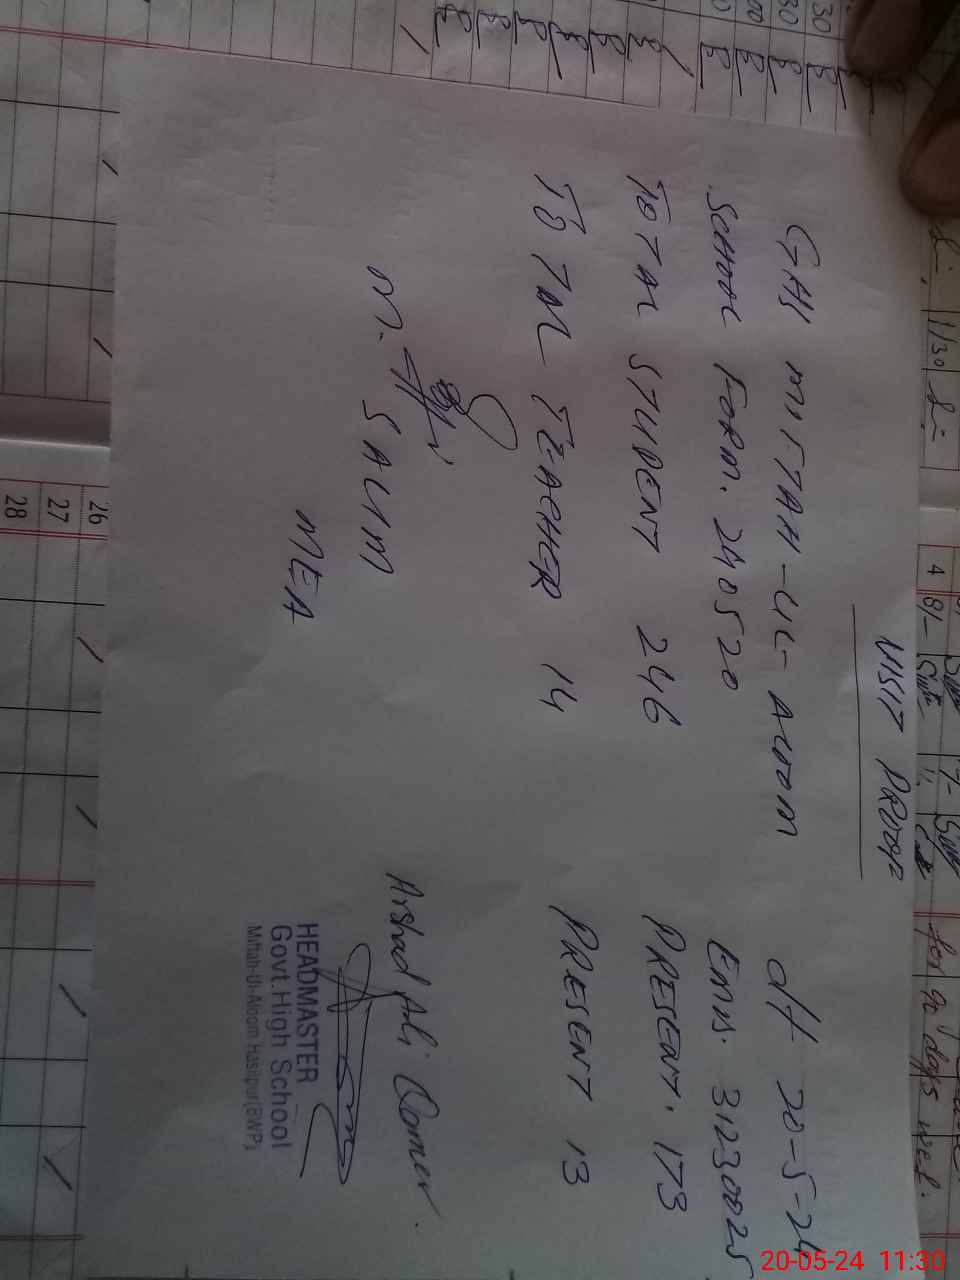 VISIT PROOF
GHS MIFTAH-UL-ALOOM dt 20-5-24
SCHOOL FORM. 240520 EMIS. 31230025
TOTAL STUDENT 246 PRESENT. 173
TOTAL TEACHER 14 PRESENT 13
M. SALIM
MEA
Arshad Ali Qamer.
HEADMASTER
Govt. High School
Miftah-Ul-Aloom Hasilpur (BWP)
for 90 days w.e.f.
1/30
4 8/-
26
27
28
20-05-24 11:30